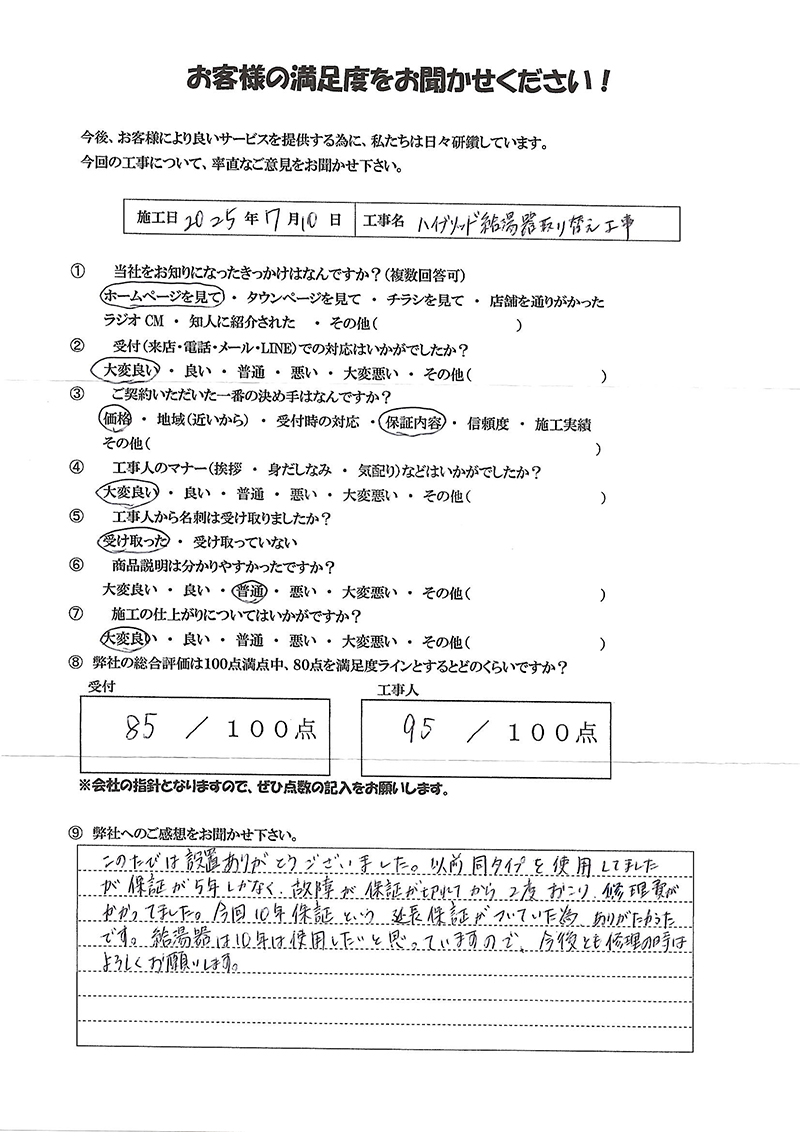 お客様の満足度をお聞かせください！
今後、お客様により良いサービスを提供する為に、私たちは日々研鑽しています。
今回の工事について、率直なご意見をお聞かせ下さい。
施工日 2025年7月10日 工事名 ハイブリッド給湯器取り替え工事
① 当社をお知りになったきっかけはなんですか？(複数回答可)
ホームページを見て ・ タウンページを見て ・ チラシを見て ・ 店舗を通りがかった
ラジオCM ・ 知人に紹介された ・ その他( )
② 受付(来店・電話・メール・LINE)での対応はいかがでしたか？
大変良い ・ 良い ・ 普通 ・ 悪い ・ 大変悪い ・ その他( )
③ ご契約いただいた一番の決め手はなんですか？
価格 ・ 地域(近いから) ・ 受付時の対応 ・ 保証内容 ・ 信頼度 ・ 施工実績
その他( )
④ 工事人のマナー(挨拶 ・ 身だしなみ ・ 気配り)などはいかがでしたか？
大変良い ・ 良い ・ 普通 ・ 悪い ・ 大変悪い ・ その他( )
⑤ 工事人から名刺は受け取りましたか？
受け取った ・ 受け取っていない
⑥ 商品説明は分かりやすかったですか？
大変良い ・ 良い ・ 普通 ・ 悪い ・ 大変悪い ・ その他( )
⑦ 施工の仕上がりについてはいかがですか？
大変良い ・ 良い ・ 普通 ・ 悪い ・ 大変悪い ・ その他( )
⑧ 弊社の総合評価は100点満点中、80点を満足度ラインとするとどのくらいですか？
受付 工事人
85 / 100点 95 / 100点
※会社の指針となりますので、ぜひ点数の記入をお願いします。
⑨ 弊社へのご感想をお聞かせ下さい。
このたびは設置ありがとうございました。以前同タイプを使用してました
が保証が5年しかなく、故障が保証が切れてから2度おこり、修理費が
かかってました。今回10年保証という延長保証がついていた為ありがたかった
です。給湯器は10年は使用したいと思っていますので、今後とも修理の時は
よろしくお願いします。